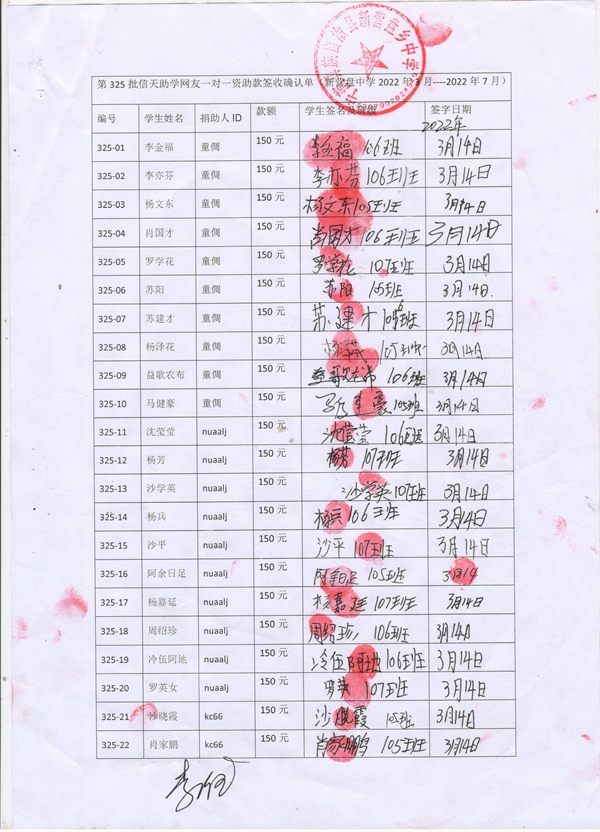 第 325 批信天助学网友一对一资助款签收确认单（新营盘中学 2022 年 3 月----2022 年 7 月）
编号 学生姓名 捐助人 ID 款额 学生签名及班级 签字日期
2022年
325-01 李金福 童倜 150 元 李金福 106班 3月14日
325-02 李亦芬 童倜 150 元 李亦芬 106班 3月14日
325-03 杨文东 童倜 150 元 杨文东 105班 3月14日
325-04 肖国才 童倜 150 元 肖国才 106班 3月14日
325-05 罗学花 童倜 150 元 罗学花 107班 3月14日
325-06 苏阳 童倜 150 元 苏阳 105班 3月14日.
325-07 苏建才 童倜 150 元 苏建才 班 3月14日
325-08 杨泽花 童倜 150 元 105班 3月14日
325-09 益歌农布 童倜 150 元 益歌农布 106班 3月14日
325-10 马健豪 童倜 150 元 马健豪 105班 3月14日
325-11 沈莹莹 nuaalj 150 元 沈莹莹 106班 3月14日
325-12 杨芳 nuaalj 150 元 杨芳 107班 3月14日
325-13 沙学英 nuaalj 150 元 沙学英 107班 3月14日
325-14 杨兵 nuaalj 150 元 杨兵 106班 3月14日
325-15 沙平 nuaalj 150 元 沙平 107班 3月14日
325-16 阿余日足 nuaalj 150 元 阿余日足 105班 3月14
325-17 杨嘉延 nuaalj 150 元 杨嘉延 107班 3月14日
325-18 周绍珍 nuaalj 150 元 周绍珍 106班 3月14日
325-19 冷伍阿地 nuaalj 150 元 冷伍阿地 106班 3月14日
325-20 罗英女 nuaalj 150 元 罗英 107班 3月14日
325-21 沙晓霞 kc66 150 元 沙晓霞 105班 3月14日
325-22 肖家鹏 kc66 150 元 肖家鹏 105班 3月14日